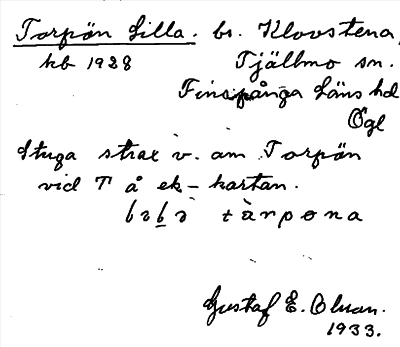 Torpön Lilla. bs. Klovstena,
kb 1928 Tjällmo sn.
Finspånga Läns hd
Ögl
Stuga strax v. om Torpön
vid T å ek-kartan.
tàrpona
Gustaf E. Olson.
1933.